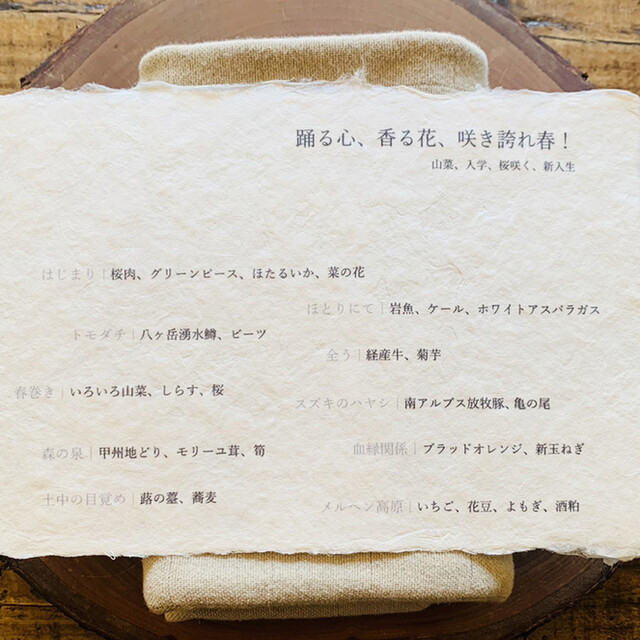 踊る心、香る花、咲き誇れ春！
山菜、入学、桜咲く、新入生
はじまり｜桜肉、グリーンピース、ほたるいか、菜の花
トモダチ｜八ヶ岳湧水鱒、ビーツ
春巻き｜いろいろ山菜、しらす、桜
森の泉｜甲州地どり、モリーユ茸、筍
土中の目覚め｜蕗の薹、蕎麦
ほとりにて｜岩魚、ケール、ホワイトアスパラガス
全う｜経産牛、菊芋
スズキのハヤシ｜南アルプス放牧豚、亀の尾
血縁関係｜ブラッドオレンジ、新玉ねぎ
メルヘン高原｜いちご、花豆、よもぎ、酒粕